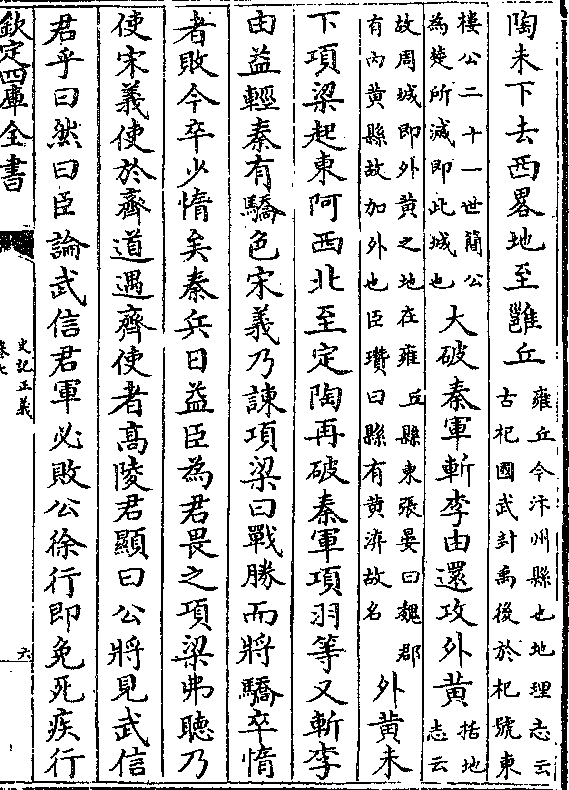 陶未下去西畧地至雝丘雍丘今汴州縣也地理志云古杞國武封禹後於杞號東
樓公二十一世簡公為楚所滅即此城也大破秦軍斬李由還攻外黄括地志云
故周城即外黄之地在雍丘縣東張晏曰魏郡有内黄縣故加外也臣瓚曰縣有黄溝故名外黄未
下項梁起東阿西北至定陶再破秦軍項羽等又斬李
由益輕秦有驕色宋義乃諫項梁曰戰勝而將驕卒惰
者敗今卒少惰矣秦兵日益臣為君畏之項梁弗聽乃
使宋義使於齊道遇齊使者髙陵君顯曰公將見武信
君乎曰然曰臣論武信君軍必敗公徐行即免死疾行
欽定四庫全書
史記正義
卷七
六